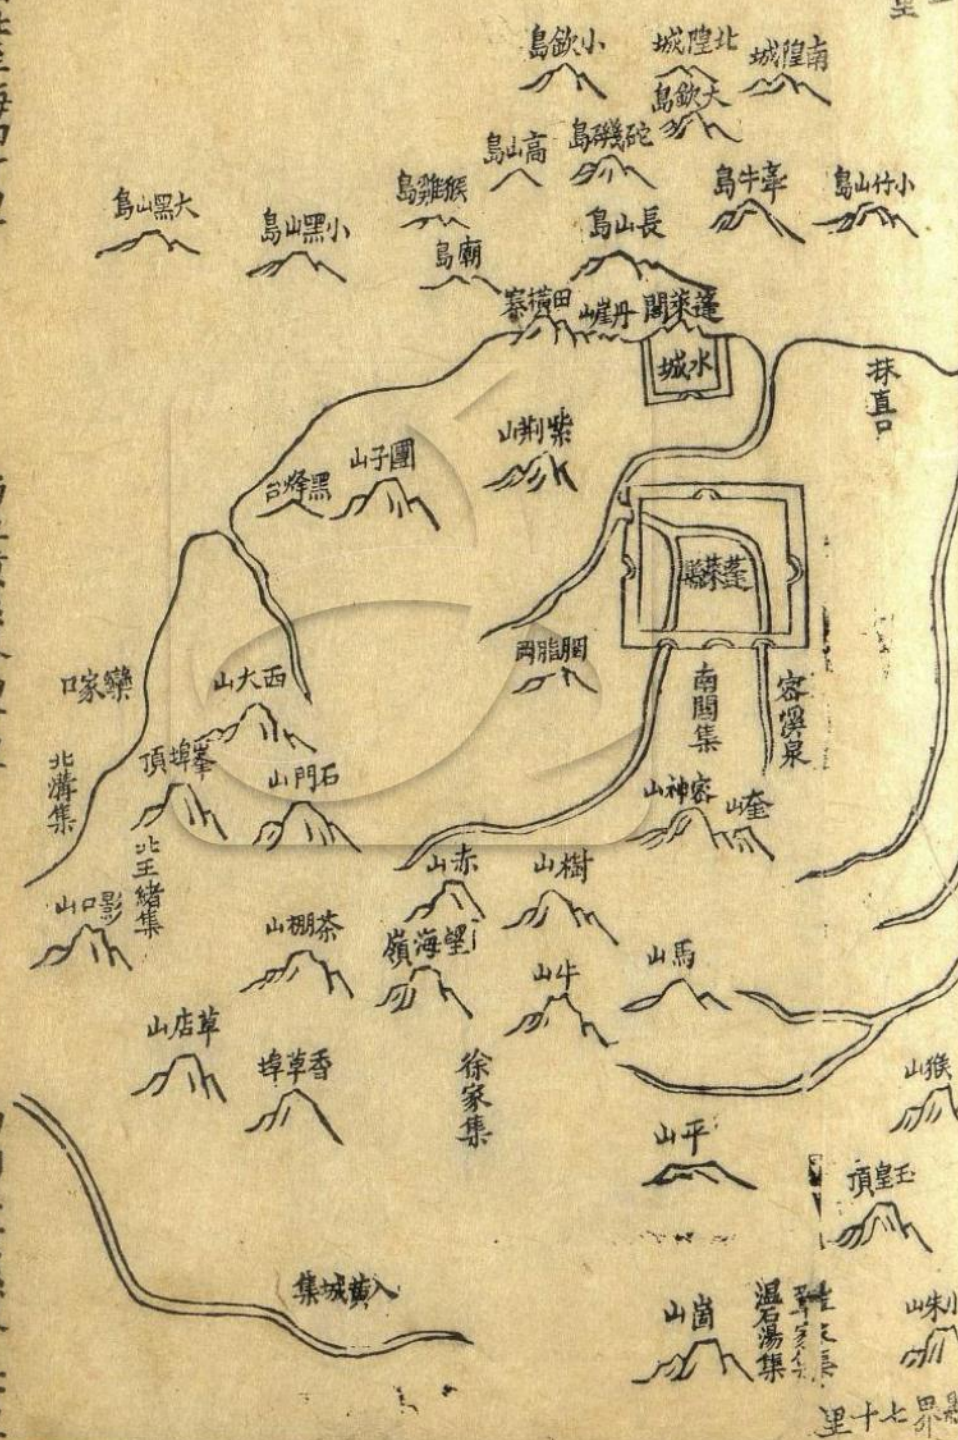 小欽島
北隍城
南隍城
大欽島
高山島
砣磯島
猴雞島
牽牛島
小竹山島
大黑山島
小黑山島
廟島
長山島
田橫寨
丹崖山
蓬萊閣
水城
抹直口
紫荆山
團子山
黑烽台
蓬萊縣
胭脂岡
南關集
密溪泉
欒家口
西大山
北溝集
峯埠頂
石門山
密神山
奎山
北王緒集
影口山
赤山
樹山
茶棚山
望海嶺
牛山
馬山
草店山
香草埠
徐家集
猴山
平山
玉皇頂
入黃城集
崮山
溫石湯集
小朱山
界七十里